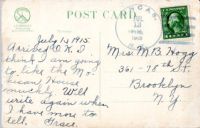 POST CARD
July 13, 1915.
Arrived O.K. I
think I am going
to like the Mo.
house
muchly. Will
write again when
I have more to
tell. Grace.
Mrs. M. B. Hogg
361 - 78th St
Brooklyn
N.Y.